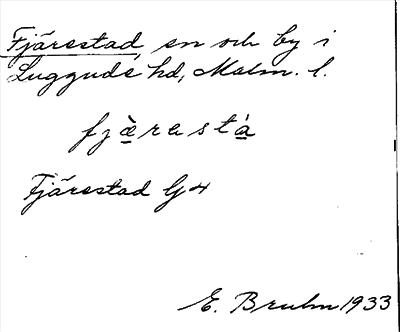 Fjärestad, sn och by i
Luggude hd, Malm. l.
fjæ̀restá
Fjärestad G 4
E. Bruhn 1933